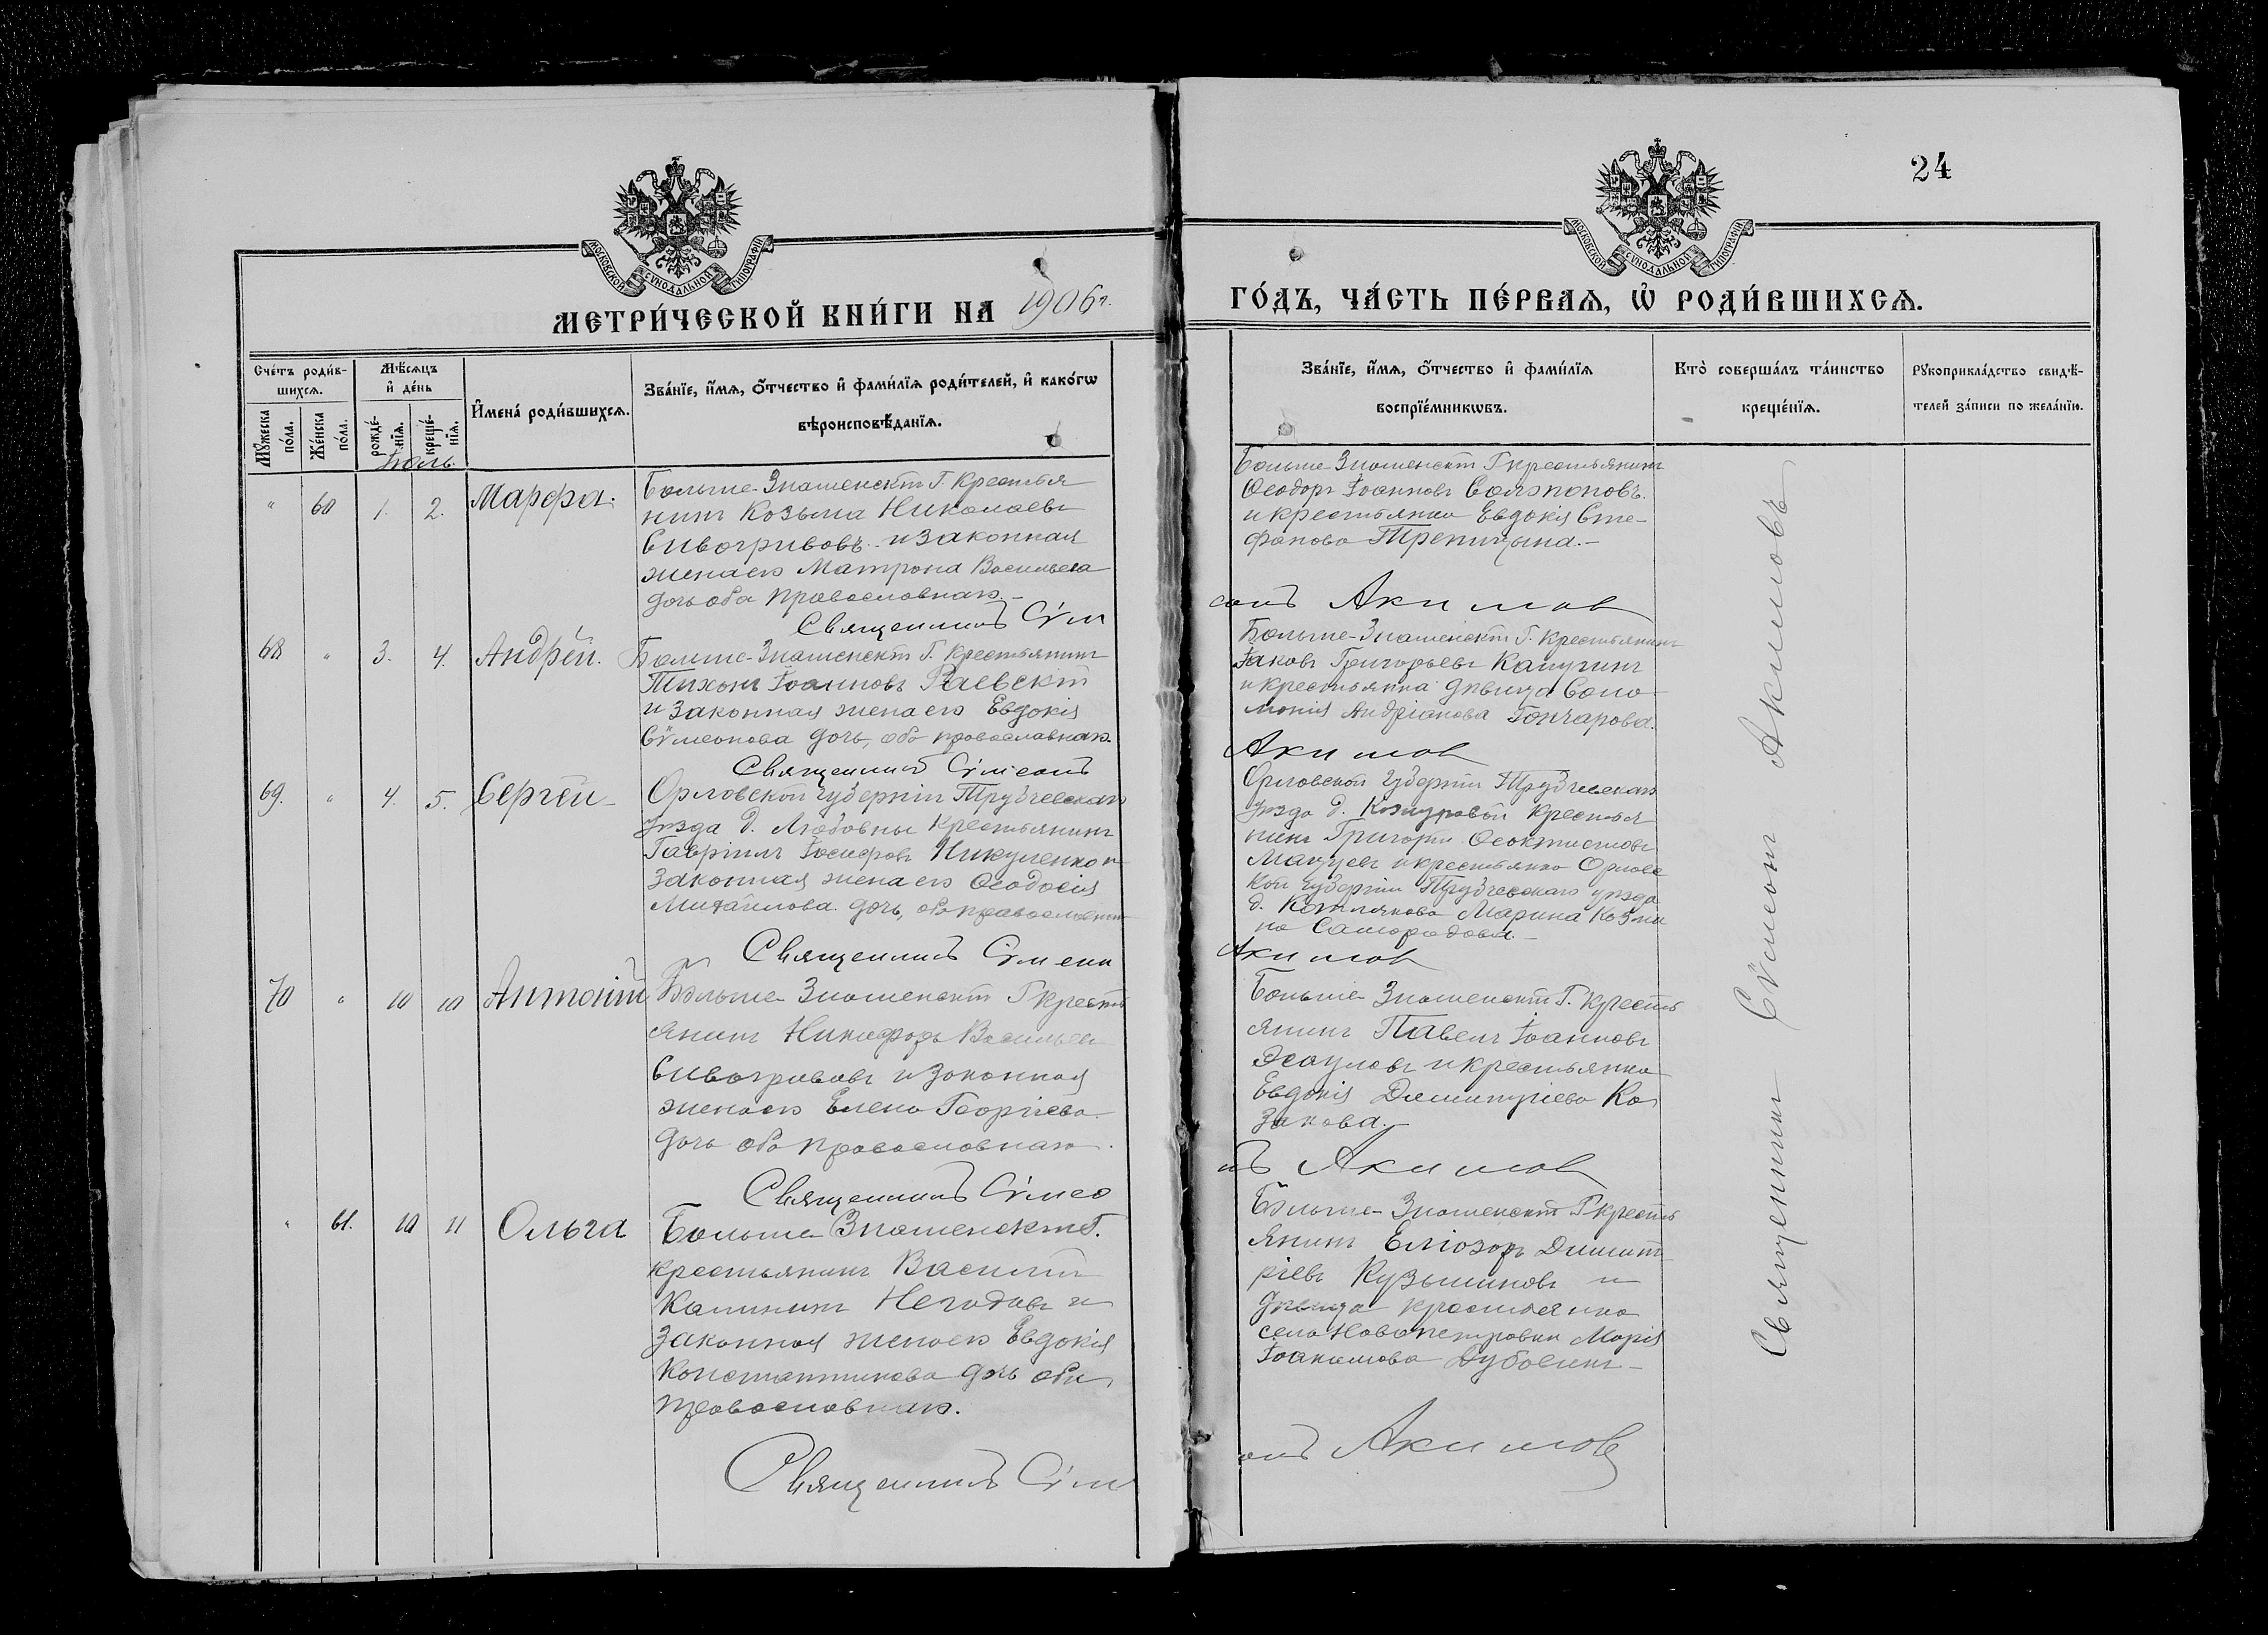 24
МОСКОВСКОЙ СѴНОДАЛЬНОЙ ТИПОГРАФІИ
МОСКОВСКОЙ СѴНОДАЛЬНОЙ ТИПОГРАФІИ
МЕТРИ́ЧЕСКОЙ КНИ́ГИ НА 1906 г.
ГО́ДЪ, ЧА́СТЬ ПЕ́РВАѦ, Ѡ҆ РОДИ́ВШИХСѦ.
Сче́тъ роди́в-
шихсѧ.
Мꙋ́жеска по́ла.
Же́нска по́ла.
Мѣ́сѧцъ
и҆ де́нь
рожде́-нїѧ.
креще́-нїѧ.
И҆мена̀ роди́вшихсѧ.
Зва́нїе, и҆́мѧ, ѻ҆́тчество и҆ фами́лїѧ роди́телей, и҆ како́гѡ
вѣроисповѣ́данїѧ.
Зва́нїе, и҆́мѧ, ѻ҆́тчество и҆ фами́лїѧ
воспрїе́мникѡвъ.
Кто̀ соверша́лъ та́инство
креще́нїѧ.
Рꙋкоприкла́дство свидѣ́-
телей за́писи по жела́нїю.
Іюль.
" 60 1. 2. Марфа.
Больше-Знаменскій Г. крестья
нинъ Козьма Николаевъ
Сивогривовъ и законная
жена его Матрона Васильева
дочь оба православнаго.
Священникъ Сѵм
Больше-Знаменскій Г крестьянинъ
Ѳеодоръ Іоанновъ
и крестьянка Евдокія Сте-
фанова Трепицына.
еонъ Акимовъ
68 " 3. 4. Андрей.
Больше-Знаменскій Г. крестьянинъ
Тихонъ Іоанновъ Раевскій
и законная жена его Евдокія
Сѵмеонова дочь, оба православнаго.
Священникъ Сѵмеонъ
Больше-Знаменскій Г. крестьянинъ
Іаковъ Григорьевъ Калугинъ
и крестьянка дѣвица Соло
монія Андріанова Гончарова.
Акимовъ
69. " 4. 5. Сергей
Орловской губерніи Трубчевскаго
уѣзда д. Любовны крестьянинъ
Гавріилъ Іосифовъ Никуленко и
законная жена его Ѳеодосія
Михайлова дочь, оба православнаго
Священникъ Сѵмеон
Орловской губерніи Трубчевскаго
уѣзда д. крестья
нинъ Григорій Ѳеоктистовъ
и крестьянка Орловс
кой губерніи Трубчевскаго уѣзда
д. Котлякова Марина Козми
на Самородова.
Акимовъ
70 " 10 10 Антоній
Больше-Знаменскій Г крестьян
янинъ Никифоръ Васильевъ
Сивогривовъ и законная
жена его Елена Георгіева
дочь оба православнаго.
Священникъ Сѵмео
Больше-Знаменскій Г. кресть
янинъ Павелъ Іоанновъ
Эсауловъ и крестьянка
Евдокія Димитріева Ка
закова.
нъ Акимовъ
" 61. 10 11 Ольга
Больше Знаменскій Г.
крестьянинъ Василій
Калининъ Негодовъ и
законная жена его Евдокія
Константинова дочь оба
православнаго.
Священникъ Сѵм
Больше-Знаменскій Г кресть
янинъ Еліозоръ Димит
ріевъ Кузьминовъ и
дѣвица крестьянка
села Новопетровки Марія
Іоакимова
еонъ Акимовъ
Священникъ Сѵмеонъ Акимовъ